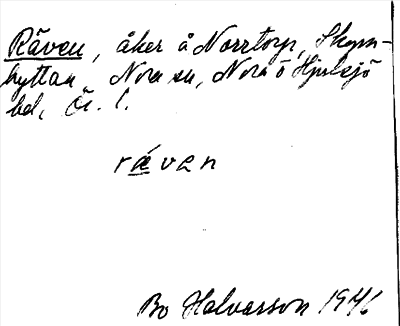 Räven, åker å Norrtorp, Skym-
hyttan Nora sn, Nora o Hjulsjö
bd, Ö. l.
räven
Bo Halvarsson 1946